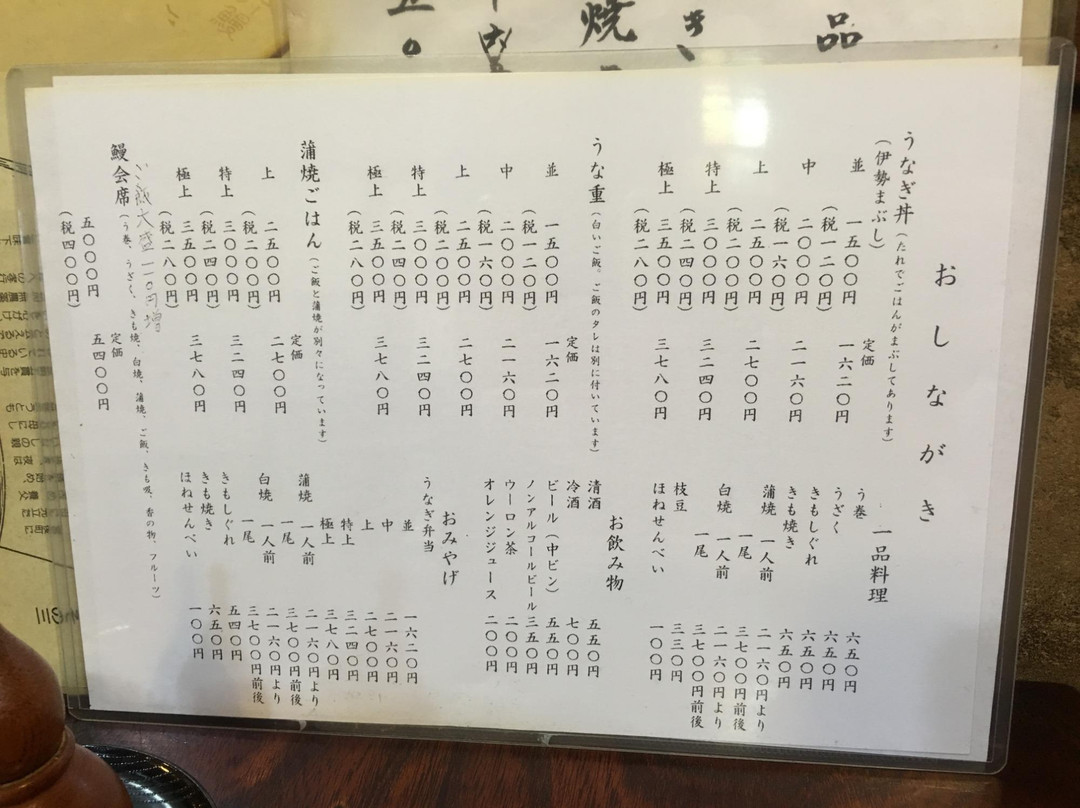 おしながき
うなぎ丼(たれでごはんがまぶしてあります)
(伊勢まぶし)
定価
並 一五〇〇円 一六二〇円
(税一二〇円)
中 二〇〇〇円 二一六〇円
(税一六〇円)
上 二五〇〇円 二七〇〇円
(税二〇〇円)
特上 三〇〇〇円 三二四〇円
(税二四〇円)
極上 三五〇〇円 三七八〇円
(税二八〇円)
うな重(白いご飯。ご飯のタレは別に付いています)
定価
並 一五〇〇円 一六二〇円
(税一二〇円)
中 二〇〇〇円 二一六〇円
(税一六〇円)
上 二五〇〇円 二七〇〇円
(税二〇〇円)
特上 三〇〇〇円 三二四〇円
(税二四〇円)
極上 三五〇〇円 三七八〇円
(税二八〇円)
蒲焼ごはん(ご飯と蒲焼が別々になっています)
定価
上 二五〇〇円 二七〇〇円
(税二〇〇円)
特上 三〇〇〇円 三二四〇円
(税二四〇円)
極上 三五〇〇円 三七八〇円
(税二八〇円)
ご飯大盛一一〇円増
鰻会席(う巻、うざく、きも焼、白焼、蒲焼、ご飯、きも吸、香の物、フルーツ)
定価
五〇〇〇円 五四〇〇円
(税四〇〇円)
一品料理
う巻 六五〇円
うざく 六五〇円
きもしぐれ 六五〇円
きも焼き 六五〇円
蒲焼 一人前 二一六〇円より
一尾 三七〇〇円前後
白焼 一人前 二一六〇円より
一尾 三七〇〇円前後
枝豆 三三〇円
ほねせんべい 一〇〇円
お飲み物
清酒 五五〇円
冷酒 七〇〇円
ビール(中ビン) 五五〇円
ノンアルコールビール 三五〇円
ウーロン茶 二〇〇円
オレンジジュース 二〇〇円
おみやげ
うなぎ弁当
並 一六二〇円
中 二一六〇円
上 二七〇〇円
特上 三二四〇円
極上 三七八〇円
蒲焼 一人前 二一六〇円より
一尾 三七〇〇円前後
白焼 一人前 二一六〇円より
一尾 三七〇〇円前後
きもしぐれ 五四〇円
きも焼き 六五〇円
ほねせんべい 一〇〇円
品
き
焼